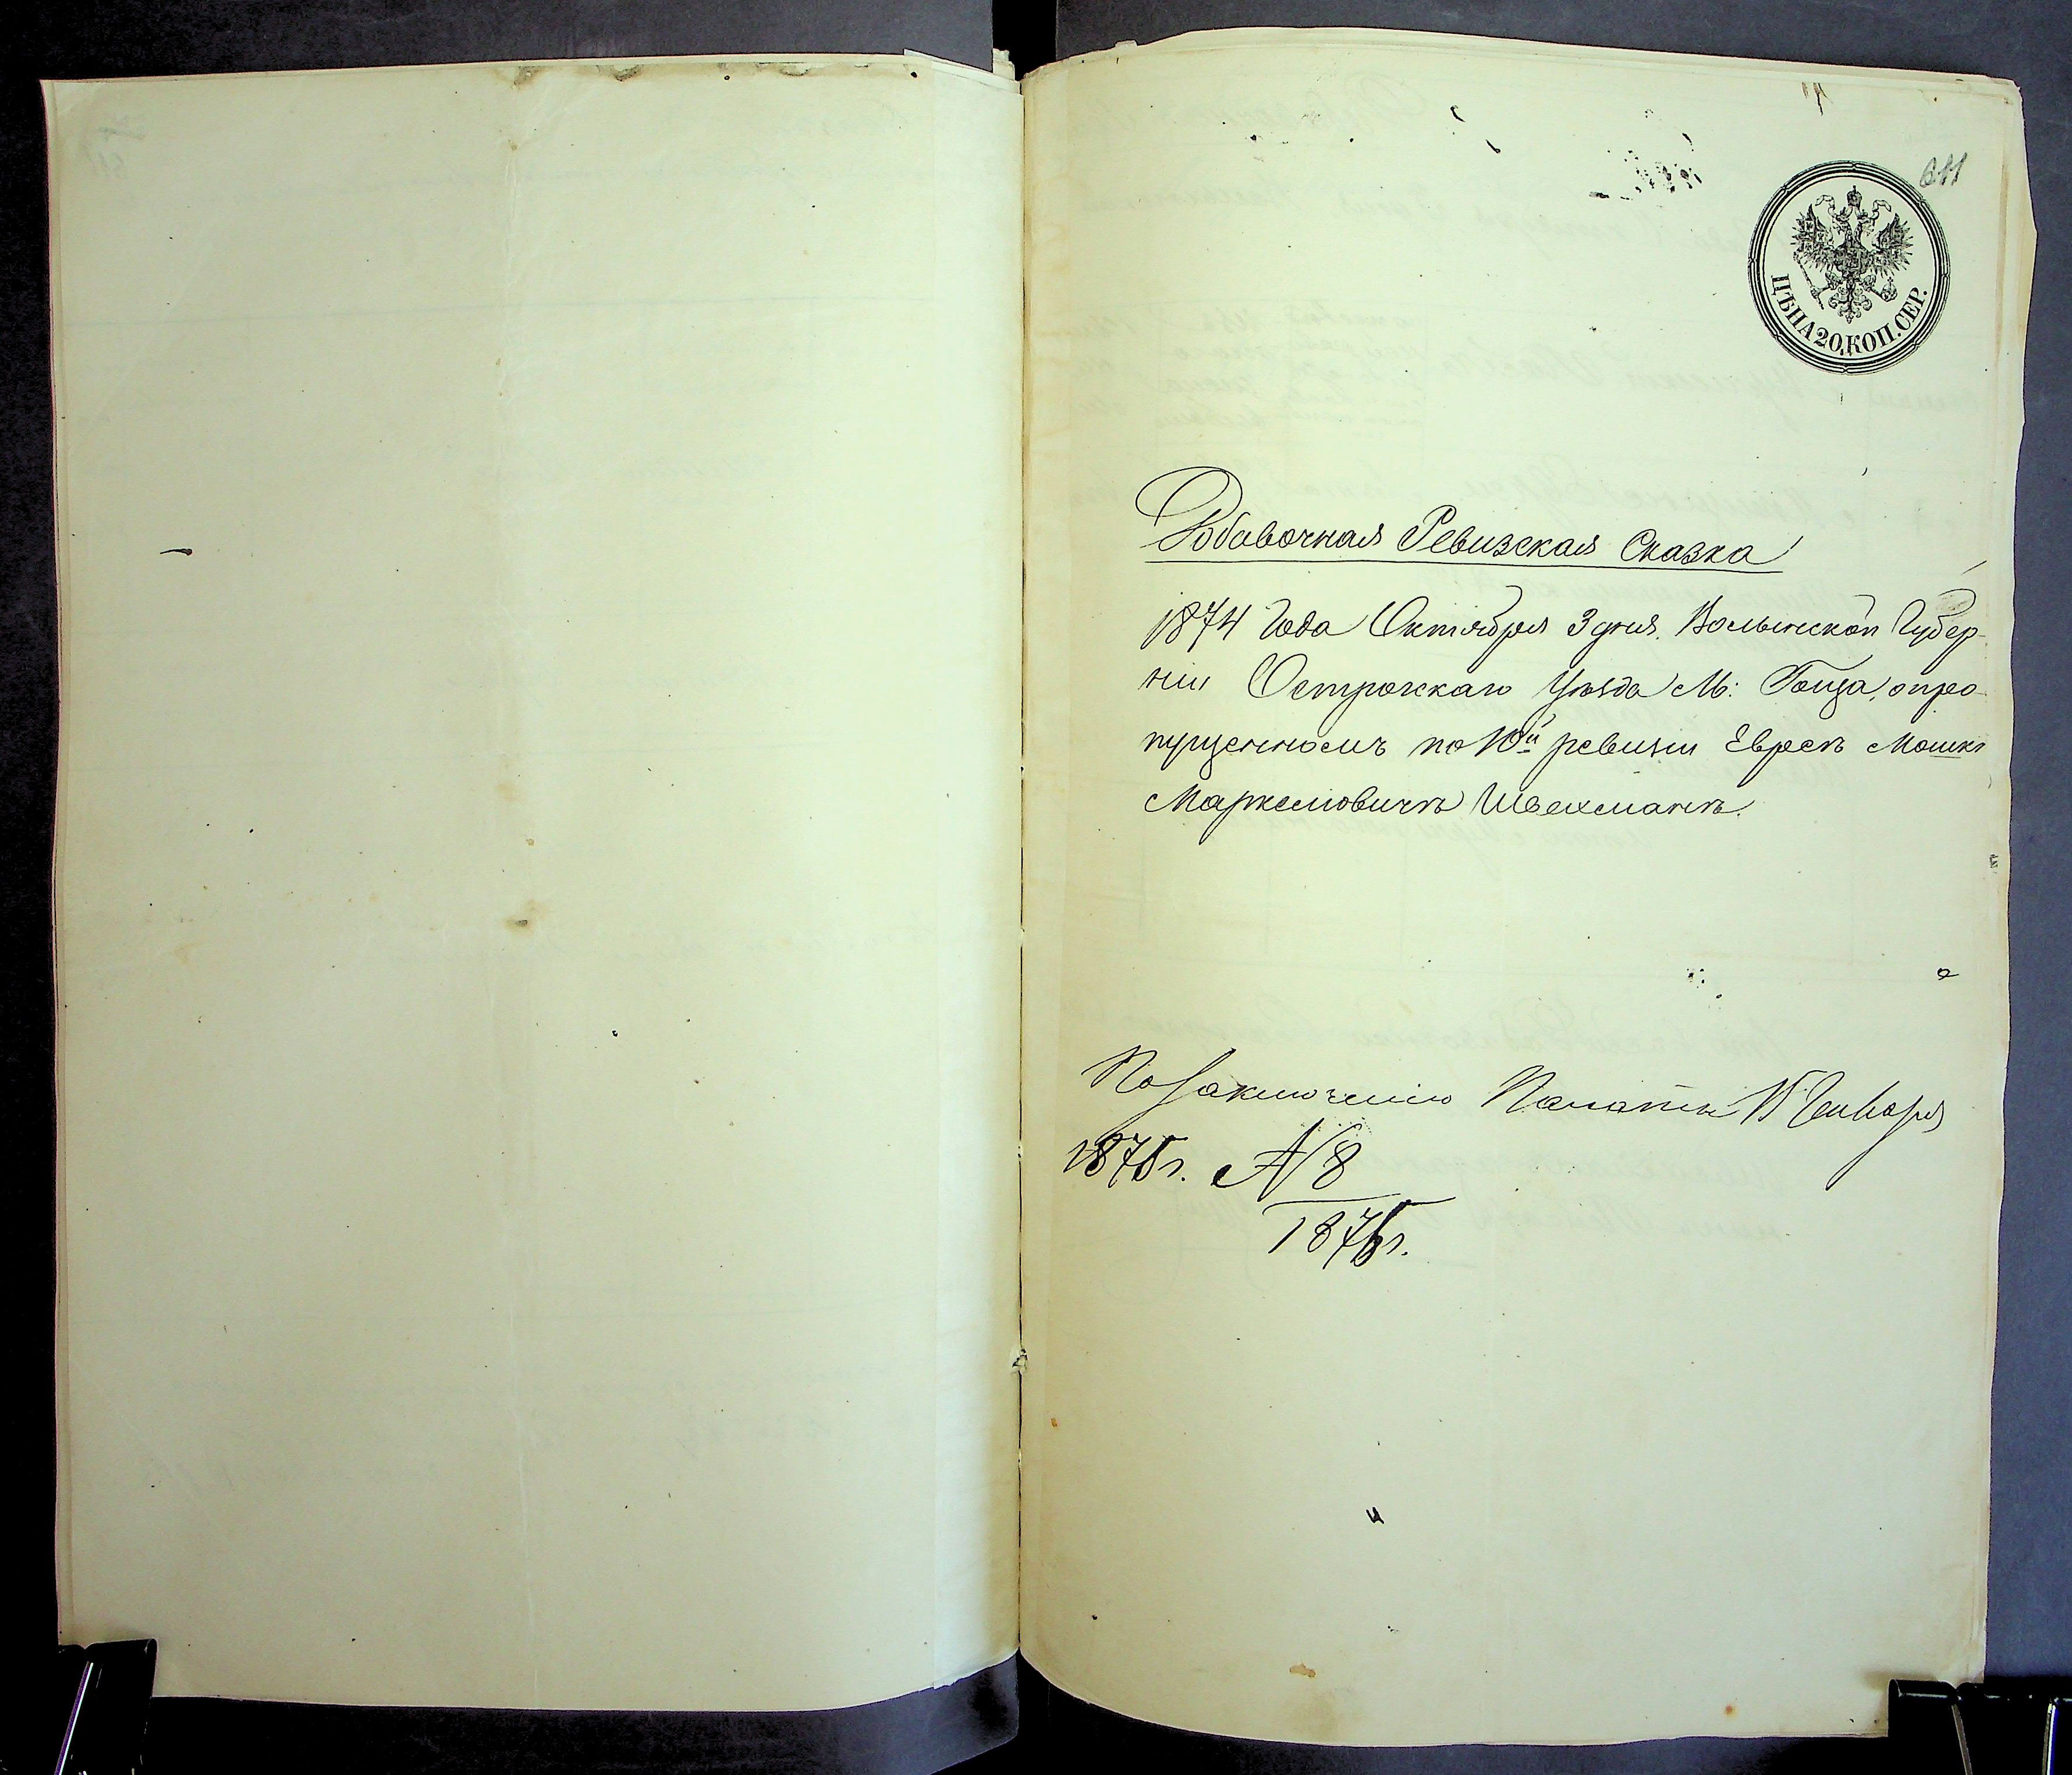 611
ЦѢНА 20 КОП. СЕР.
Добавочная Ревизская Сказка
1874 Года Октября 3 дня. Волынской Губер-
ніи Острожскаго Уѣзда М: Гоща, о про-
пущенномъ по 10й ревизіи Евреѣ Мошкѣ
Маркелювичѣ Швехманѣ.
По заключенію Палаты 15 Генваря
1875 г. № 8
1875 г.